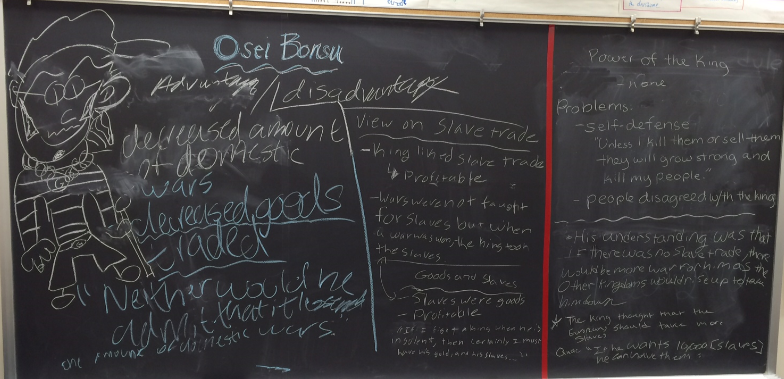 Osei Bonsu
Advantage / disadvantage
decreased amount
of domestic
wars
decreased goods
traded
"Neither would he
admit that it lessened
the amount of domestic wars."
View on Slave trade
- King liked slave trade
Profitable
- wars were not faught
for slaves but when
a war was won, the king took
the slaves
Goods and Slaves
- Slaves were goods
- Profitable
insolent, then certainly I must
have his gold, and his slaves...
Power of the King
- none
Problems:
- self-defense
"Unless I kill them or sell them
they will grow strong and
kill my people."
- people disagreed w/ the kings
* His understanding was that
if there was no slave trade, there
would be more war
other kingdoms would
him down
* The king thought that the
should take more
slaves
"If he wants 10,000 [slaves]
he can have them"